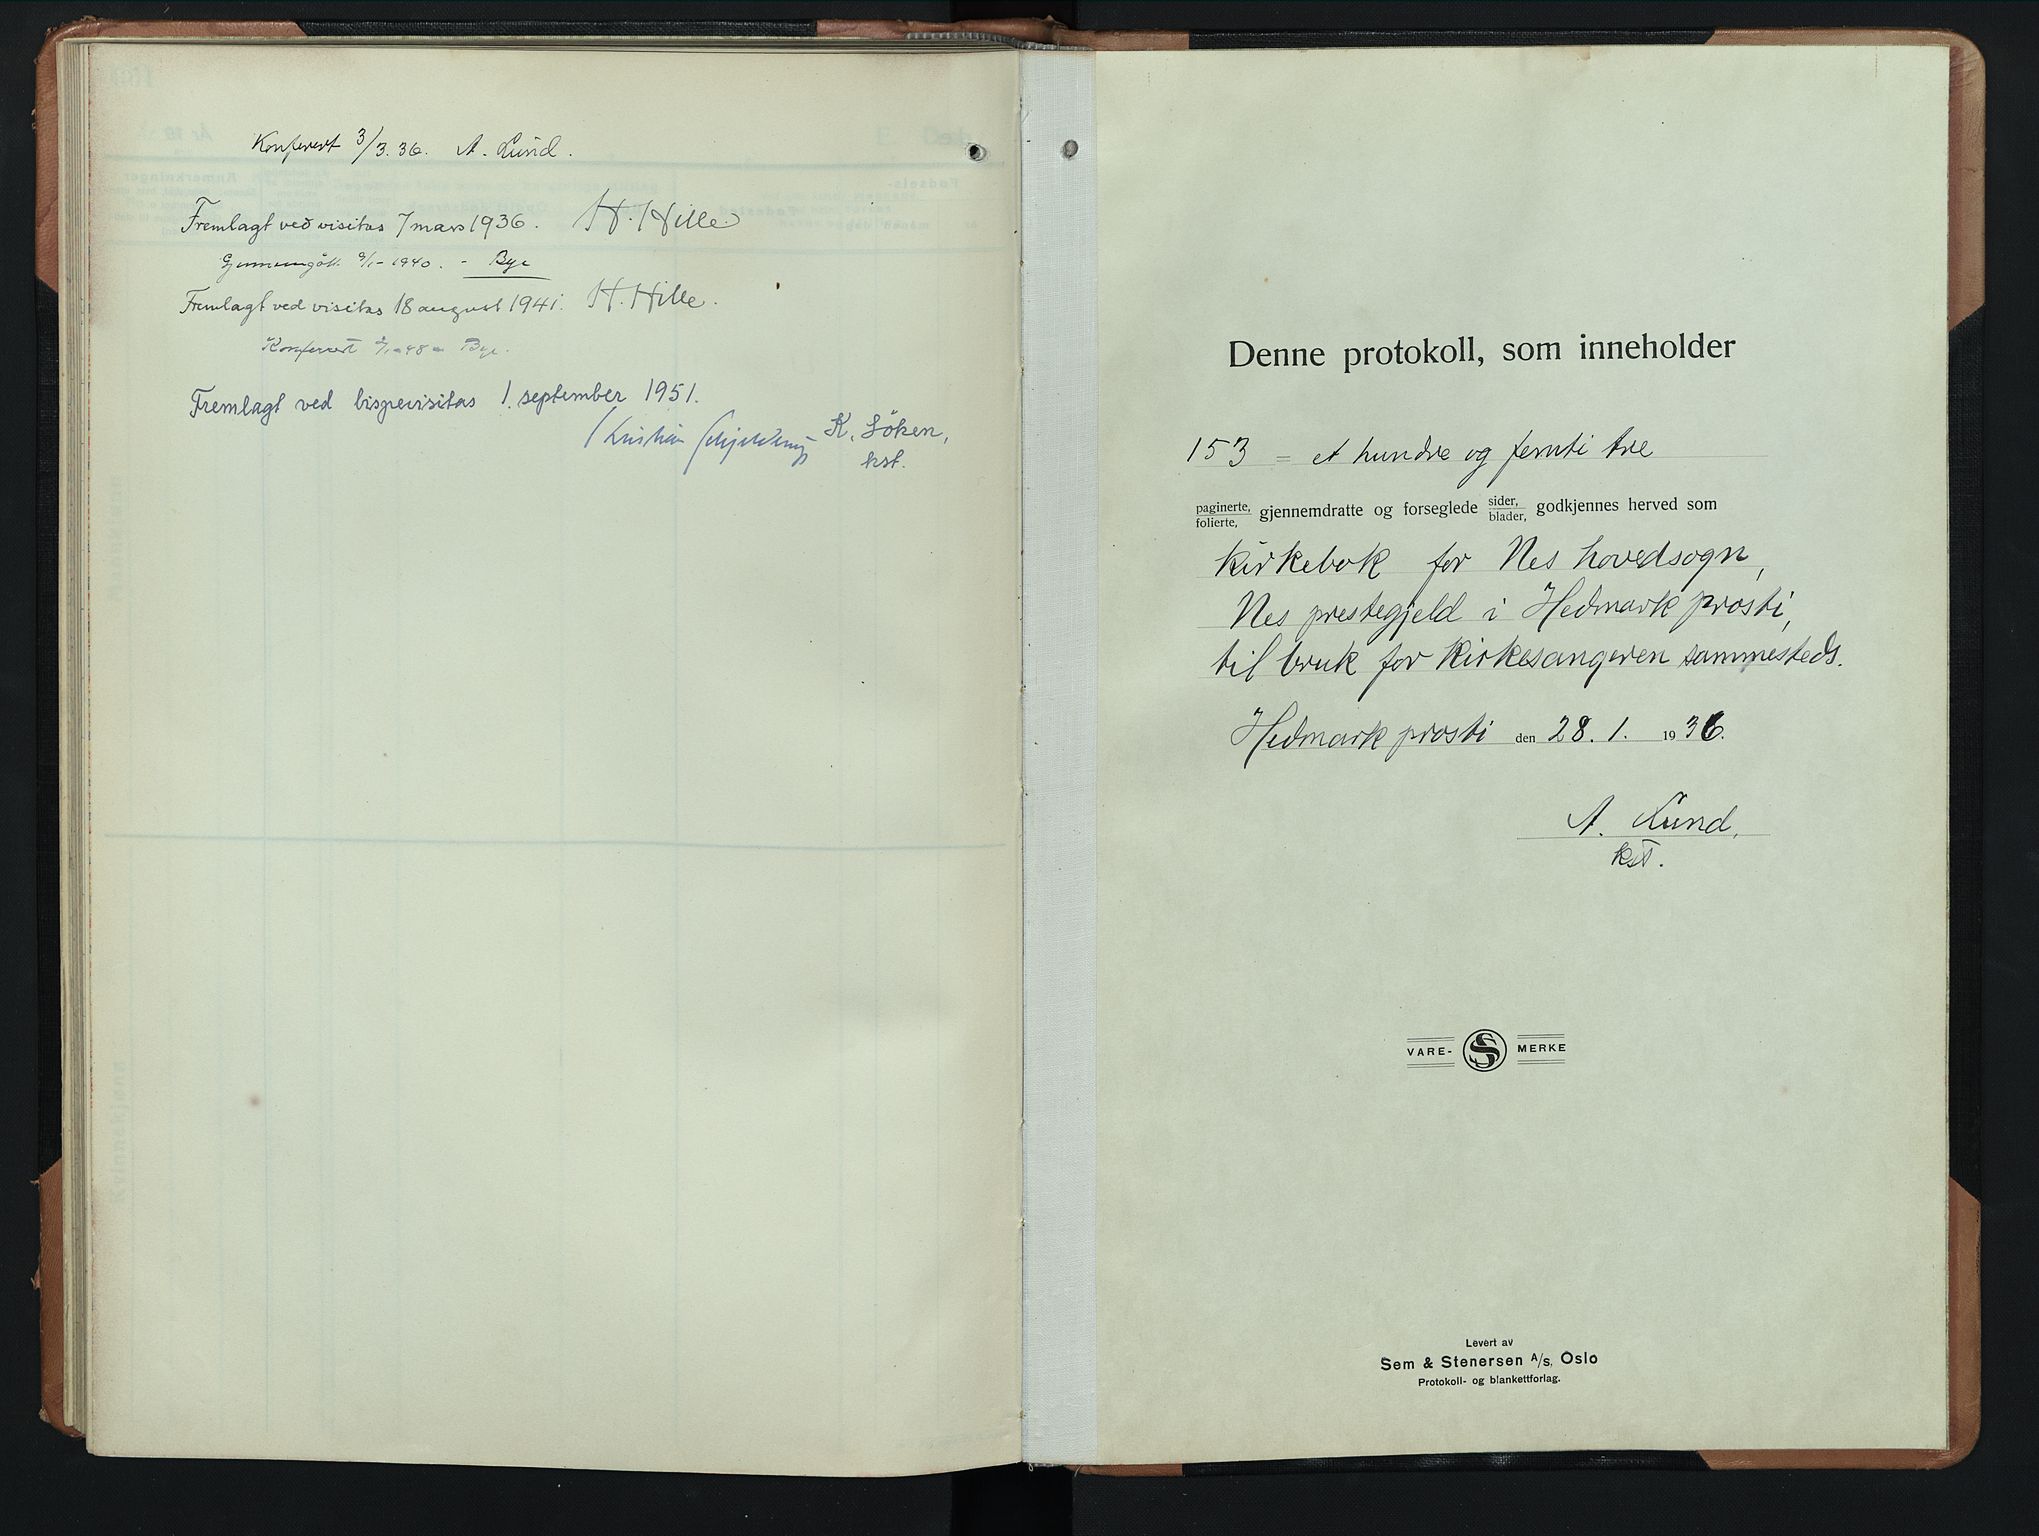 Konferert 3/3. 36. A. Lund.
Fremlagt ved visitas 7 mars 1936. H. Hille.
Gjennemgått 9/1- 1940. - Bye
Fremlagt ved visitas 18 august 1941. H. Hille.
Konferert /1-48- Bye.
Fremlagt ved bispevisitas 1. september 1951.
Kristian Schjelderup K. Löken,
kst.
Denne protokoll, som inneholder
153 = et hundre og femti tre
paginerte, folierte, gjennemdratte og forseglede sider, blader, godkjennes herved som
kirkebok for Nes hovedsogn,
Nes prestegjeld i Hedmark prosti,
til bruk for kirkesangeren sammesteds.
Hedmark prosti den 28. 1. 1936.
A. Lund.
kst.
VARE- SS MERKE
Levert av
Sem & Stenersen A/s, Oslo
Protokoll- og blankettforlag.